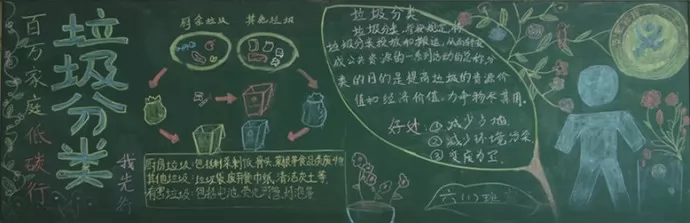 垃圾分类
百万家庭低碳行
我先行
厨余垃圾
其他垃圾
厨房垃圾:包括剩菜剩饭、骨头、菜根等食品类废物
其他垃圾:
有害垃圾:包括电池、荧光灯管、
垃圾分类
垃圾分类,
垃圾分类投放和搬运,从而转变
成公共资源的一系列活动的总称,分
类的目的是提高垃圾的资源价
值和经济价值,力争物尽其用。
好处:①减少占地
②减少环境污染
③变废为宝
六(1)班